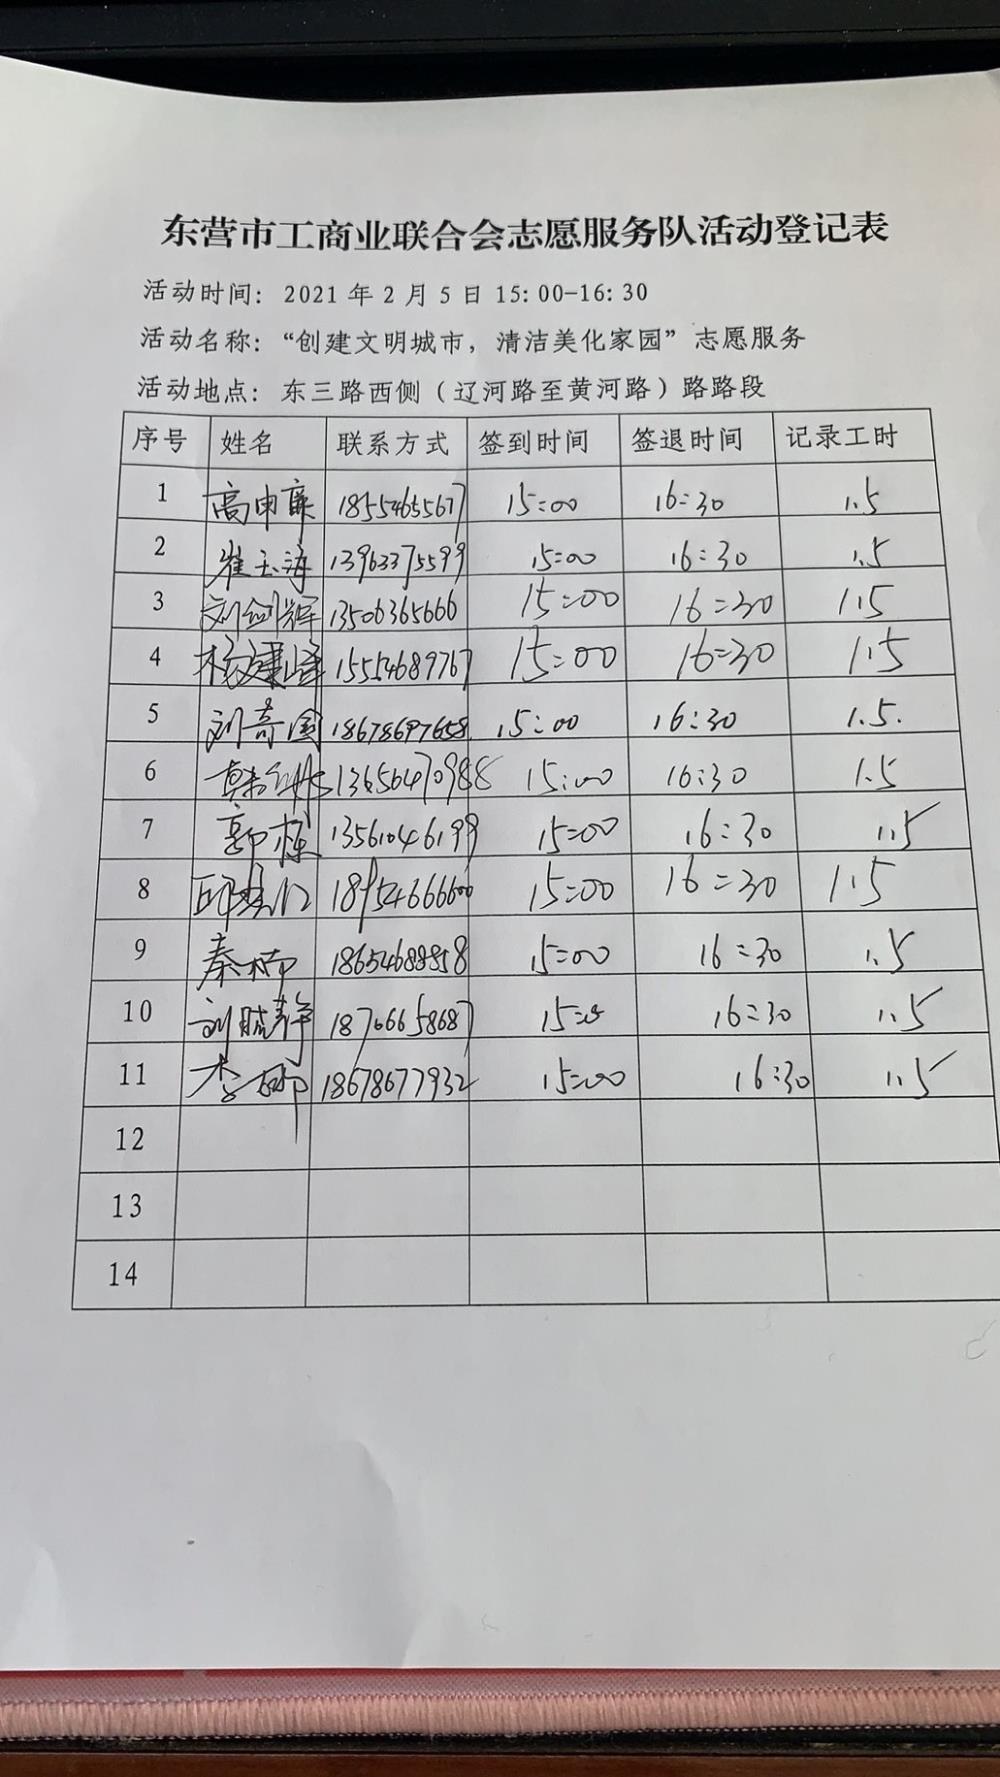 东营市工商业联合会志愿服务队活动登记表
活动时间：2021年2月5日15:00-16:30
活动名称：“创建文明城市，清洁美化家园”志愿服务
活动地点：东三路西侧（辽河路至黄河路）路路段
序号 姓名 联系方式 签到时间 签退时间 记录工时
1 高申 18554655677 15:00 16:30 1.5
2 崔玉海 13963375599 15:00 16:30 1.5
3 刘剑辉 13506365666 15:00 16:30 1.5
4 杨建峰 15554689767 15:00 16:30 1.5
5 刘奇国 18678697658 15:00 16:30 1.5.
6 韩 13656470988 15:00 16:30 1.5
7 郭栋 13561046199 15:00 16:30 1.5
8 邱 18954666600 15:00 16:30 1.5
9 秦楠 18654688858 15:00 16:30 1.5
10 刘晓静 187066658687 15:00 16:30 1.5
11 李娜 18678677932 15:00 16:30 1.5
12
13
14